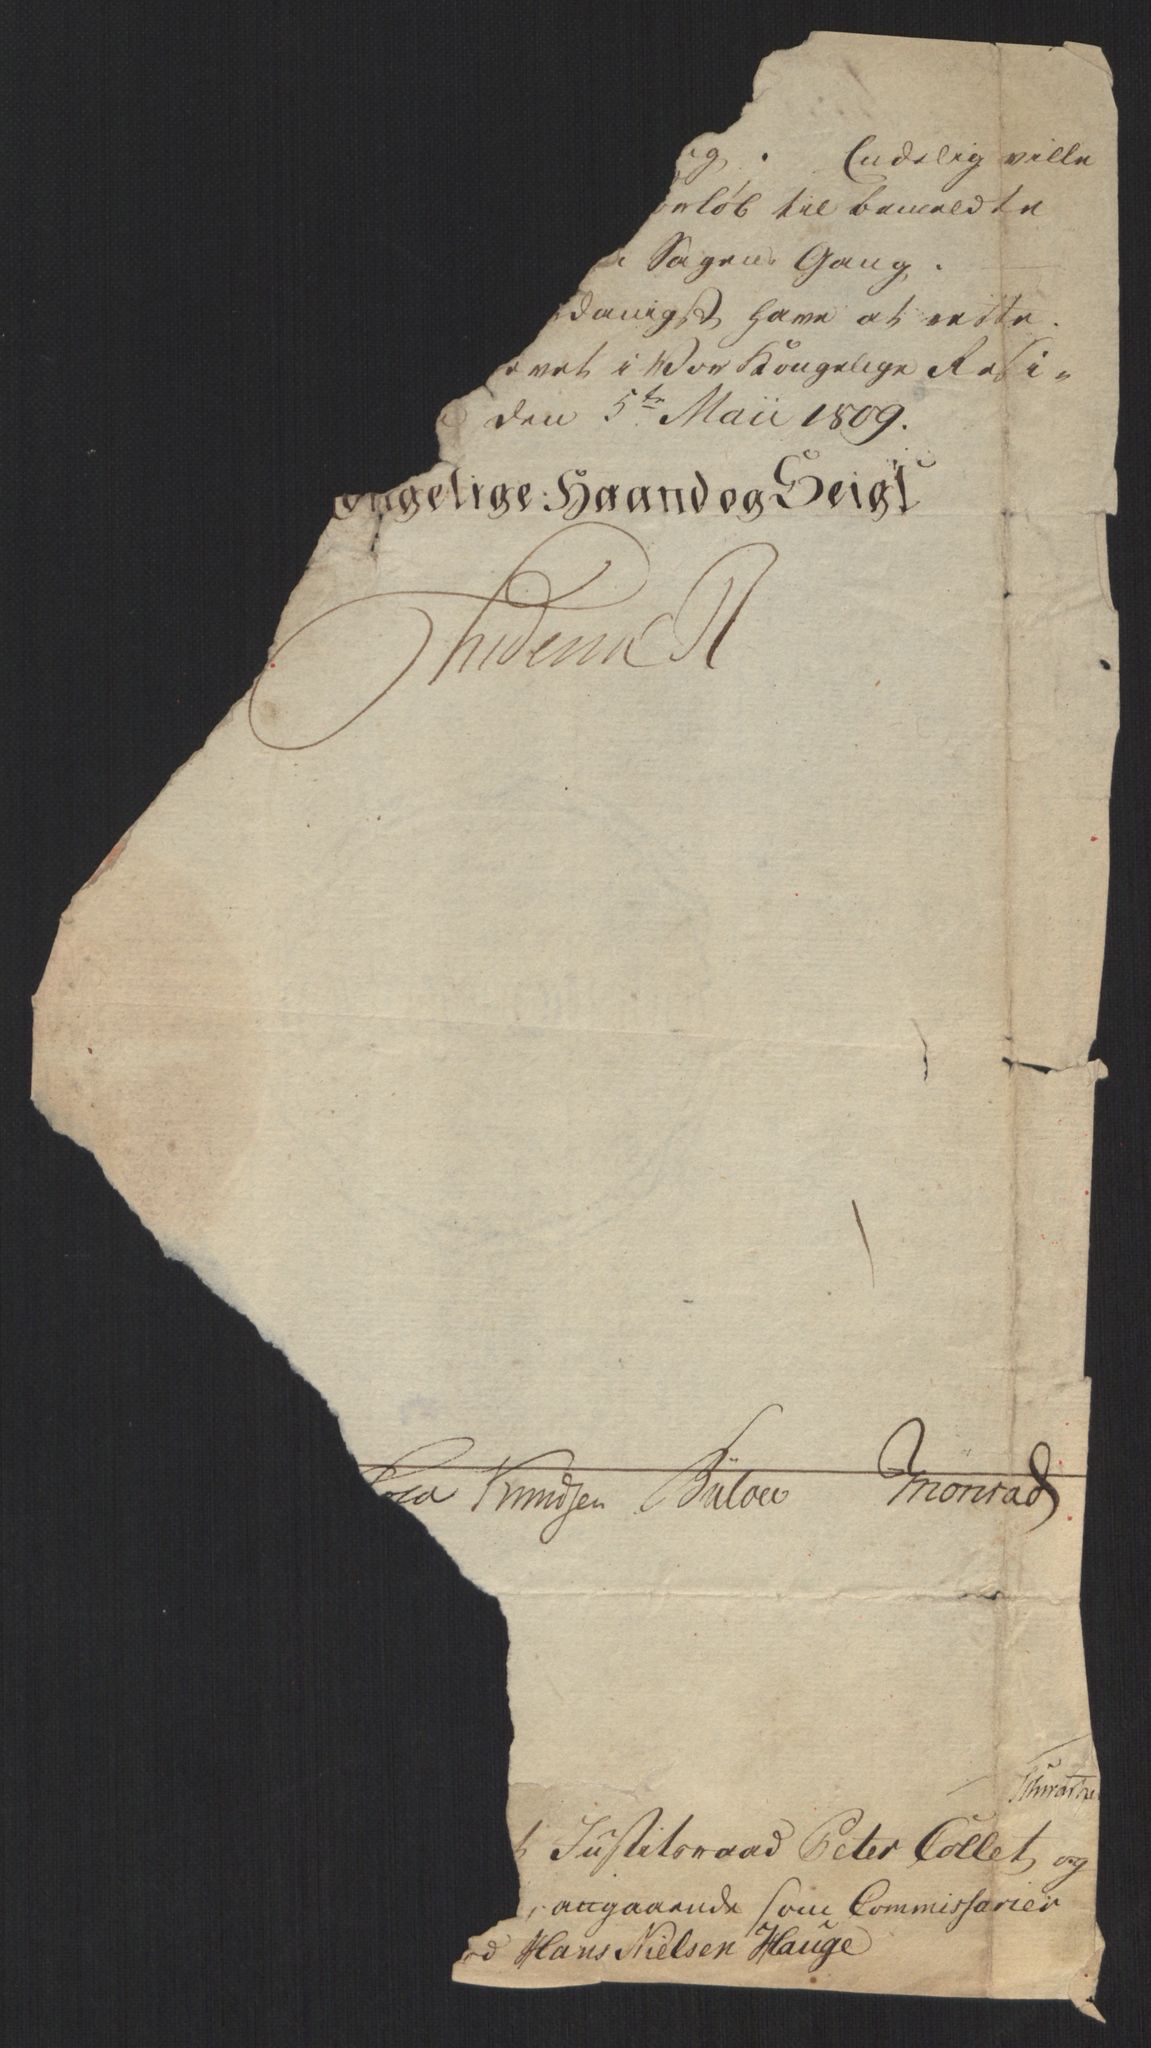 ig. Endelig ville
orløb til bemeldte
Sagens Gang.
danigst have at rette.
evet i Vor Kongelige Resi-
den 5te Maii 1809.
ongelige Haand og Seigl
Friderich R
Knudsen Bülow Monrad
Justitsraad Peter Collet og
angaaende som Commissarier
Hans Nielsen Hauge